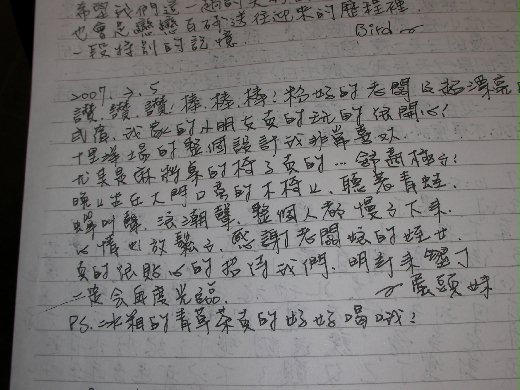 希望我們這一趟的
也會是戀戀百砳送往迎來的歷程裡
一段特別的記憶.
Bird
2007. 7. 5
讚.讚.讚! 棒.棒.棒! 粉好的老闆
我家的小朋友真的玩的很開心!
的整個設計我非常喜歡
尤其是麻將桌的椅子真的...舒爽極了!
晚上坐在大門口旁的木椅上, 聽著青蛙.
蟬叫聲, 浪潮聲, 整個人都慢了下來.
心情也放鬆了. 感謝老闆娘的
真的很貼心的招待我們. 明年來墾丁
一定會再度光臨.
屋頭妹
PS. 冰箱的青草茶真的好好喝哦!